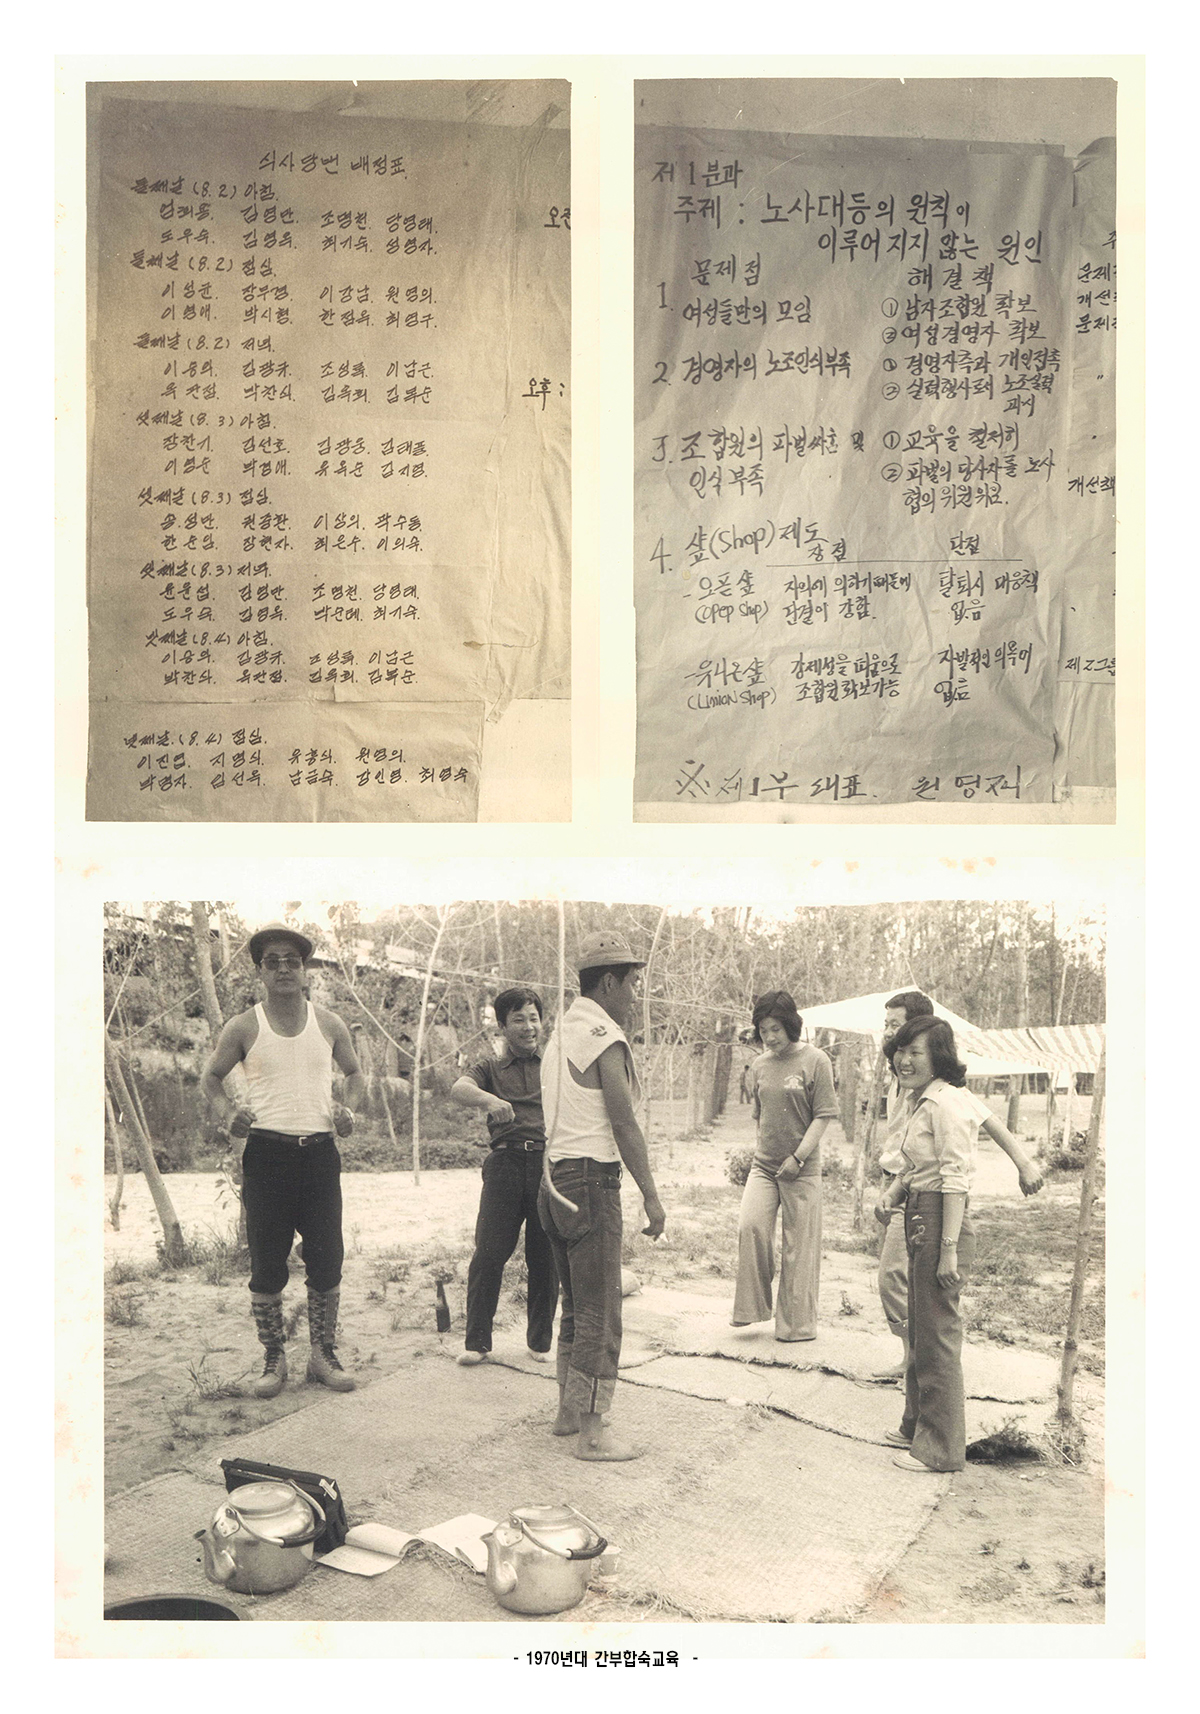 식사당번 배정표.
둘째날 (8.2) 아침.
김영만. 조명천. 당영태.
도우숙. 김영옥. 최기숙. 성영자.
둘째날 (8.2) 점심.
이성균. 장무경. 이강남. 원영의.
이영애. 박시형. 한점옥. 최영구.
둘째날 (8.2) 저녁.
이용의. 김광규. 조성록. 이남근.
옥찬점. 박찬식. 김옥희. 김복순
셋째날 (8.3) 아침.
장찬기. 김선호. 김광웅.
이영순 박경애. 유옥순 김지영.
셋째날 (8.3) 점심.
송성만. 권중환. 이상의. 곽수동.
한순임. 장현자. 최은수. 이의숙.
셋째날 (8.3) 저녁.
윤문섭. 김영만. 조명천. 당영태.
도우숙. 김영옥. 최기숙.
넷째날 (8.4) 아침.
이용의. 김광규. 조성록. 이남근
박찬식. 옥찬점. 김옥희. 김복순.
넷째날. (8.4) 점심.
이진엽. 지명식. 유흥식. 원영의.
박명자. 김선옥. 남금숙. 강인영. 최영숙
오전
오후 :
제 1 분과
주제 : 노사대등의 원칙이
이루어 지지 않는 원인
문제점 해결책
1. 여성들만의 모임 ① 남자조합원 확보
② 여성경영자 확보
2. 경영자의 노조인식부족 ① 경영자측과 개인접촉
② 실력행사로서 노조실력
과시
3. 조합원의 파벌싸움 및 ① 교육을 철저히
인식 부족 ② 파벌의 당사자를 노사
협의 위원위로.
4. 샾(Shop) 제도
장점 단점
- 오픈샾 자의에 의하기때문에 탈퇴시 대응책
(Open Shop) 단결이 강함. 없음
- 유니온샾 강제성을 띠움으로 자발적인 의욕이
(Union Shop) 조합원확보가능 없음
※ 제1부 대표. 원영
문제
개선
문제
"
개선책
제2그룹
- 1970년대 간부합숙교육 -